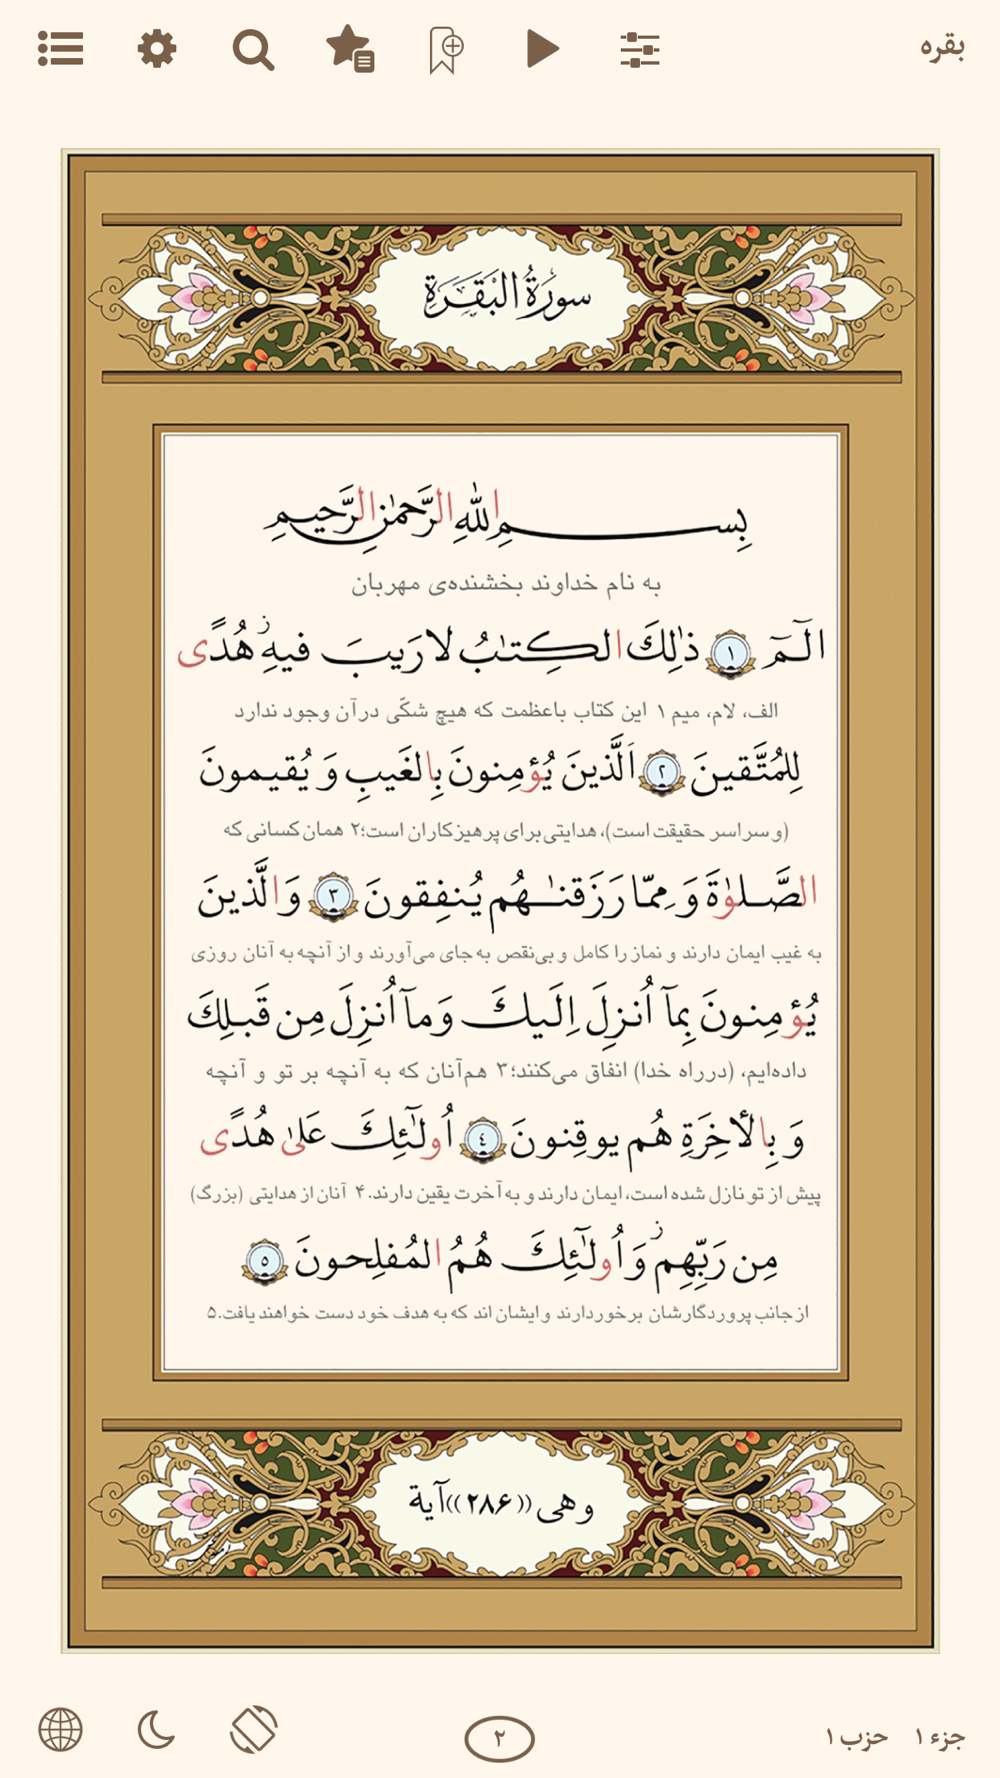 بقره
سورة البقرة
بِسمِ اللّٰهِ الرَّحمٰنِ الرَّحيمِ
به نام خداوند بخشنده‌ی مهربان
الٓمٓ ١ ذٰلِكَ الكِتٰبُ لا رَيبَ فيهِ هُدًى
الف، لام، میم ۱ این کتاب باعظمت که هیچ شکّی درآن وجود ندارد
لِلمُتَّقينَ ٢ اَلَّذينَ يُؤمِنونَ بِالغَيبِ وَ يُقيمونَ
(و سراسر حقیقت است)، هدایتی برای پرهیزکاران است؛۲ همان کسانی که
الصَّلوٰةَ وَ مِمّا رَزَقنٰهُم يُنفِقونَ ٣ وَالَّذينَ
به غیب ایمان دارند و نماز را کامل و بی‌نقص به جای می‌آورند و از آنچه به آنان روزی
يُؤمِنونَ بِمآ اُنزِلَ اِلَيكَ وَمآ اُنزِلَ مِن قَبلِكَ
داده‌ایم، (درراه خدا) انفاق می‌کنند؛۳ هم‌آنان که به آنچه بر تو و آنچه
وَ بِالأخِرَةِ هُم يوقِنونَ ٤ اُولٰٓئِكَ عَلىٰ هُدًى
پیش از تو نازل شده است، ایمان دارند و به آخرت یقین دارند.۴ آنان از هدایتی (بزرگ)
مِن رَبِّهِم وَ اُولٰٓئِكَ هُمُ المُفلِحونَ ٥
از جانب پروردگارشان برخوردارند و ایشان اند که به هدف خود دست خواهند یافت.۵
وهی ((۲۸۶)) آیة
جزء ۱ حزب ۱ ۲